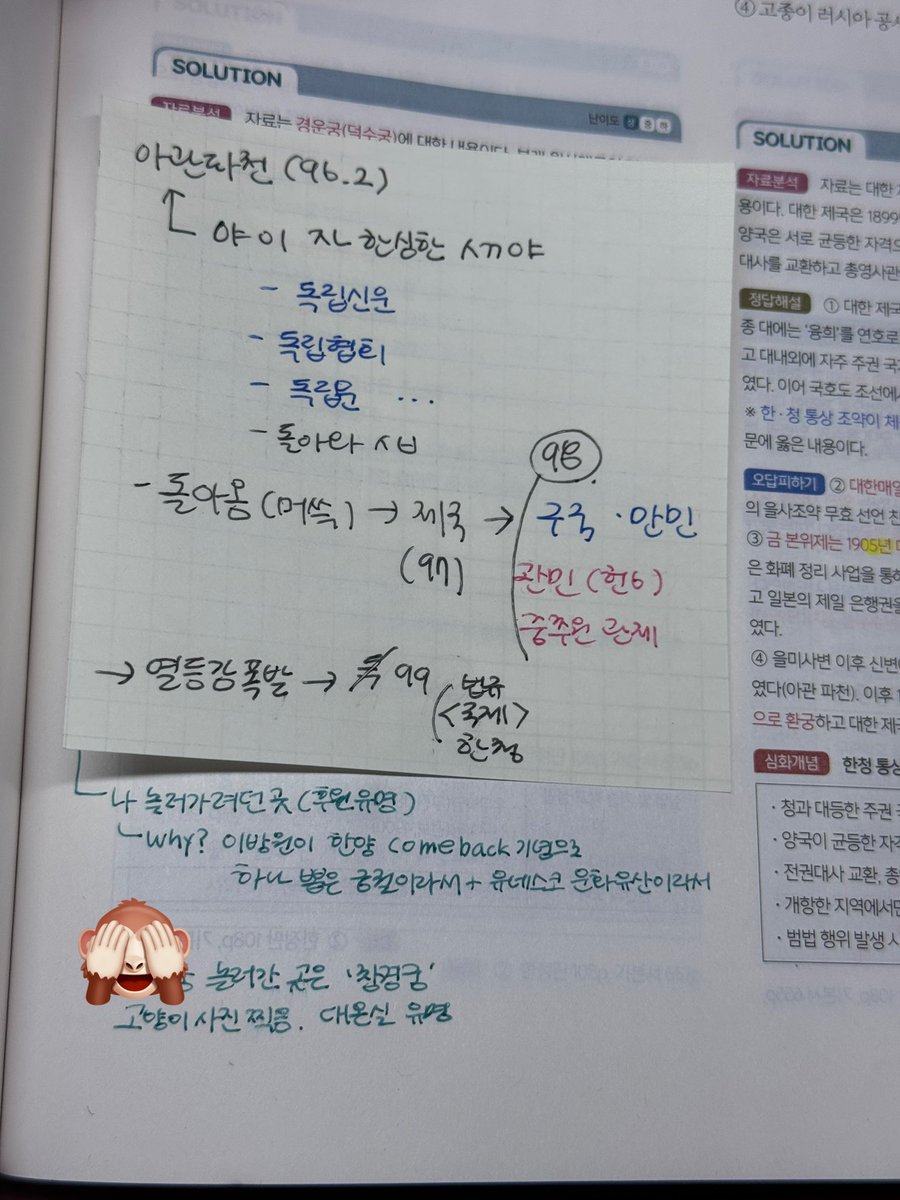 ④ 고종이 러시아 공사
SOLUTION
난이도 상 중 하
자료분석 자료는 경운궁(덕수궁)에 대한 내용이다.
아관파천 (96.2)
야 이 자 한심한 ㅅㄲ야
- 독립신문
- 독립협회
- 독립문 ...
- 돌아와 ㅅㅂ
- 돌아옹 (머쓱) → 제국 → 구국 · 만민
98.
(97)
관민 (헌6)
중추원 관제
→ 열등감폭발 → 99
법규
<국제>
한청
나 놀러가려던 곳 (후원유명)
why? 이방원이 한양 comeback 기념으로
하나 뽑은 궁궐이라서 + 유네스코 문화유산이라서
놀러간 곳은 '창경궁'
고양이 사진 찍음. 대온실 유명
SOLUTION
자료분석 자료는 대한
용이다. 대한 제국은 1899
양국은 서로 균등한 자격으
대사를 교환하고 총영사관
정답해설 ① 대한 제국
종 대에는 '융희'를 연호로
고 대내외에 자주 주권 국
였다. 이어 국호도 조선에서
※ 한·청 통상 조약이 체
문에 옳은 내용이다.
오답피하기 ② 대한매일
의 을사조약 무효 선언 친
③ 금 본위제는 1905년
은 화폐 정리 사업을 통해
고 일본의 제일 은행권을
였다.
④ 을미사변 이후 신변
였다(아관 파천). 이후 1
으로 환궁하고 대한 제국
심화개념 한청 통상
· 청과 대등한 주권
· 양국이 균등한 자격
· 전권대사 교환, 총
· 개항한 지역에서만
· 범법 행위 발생 시